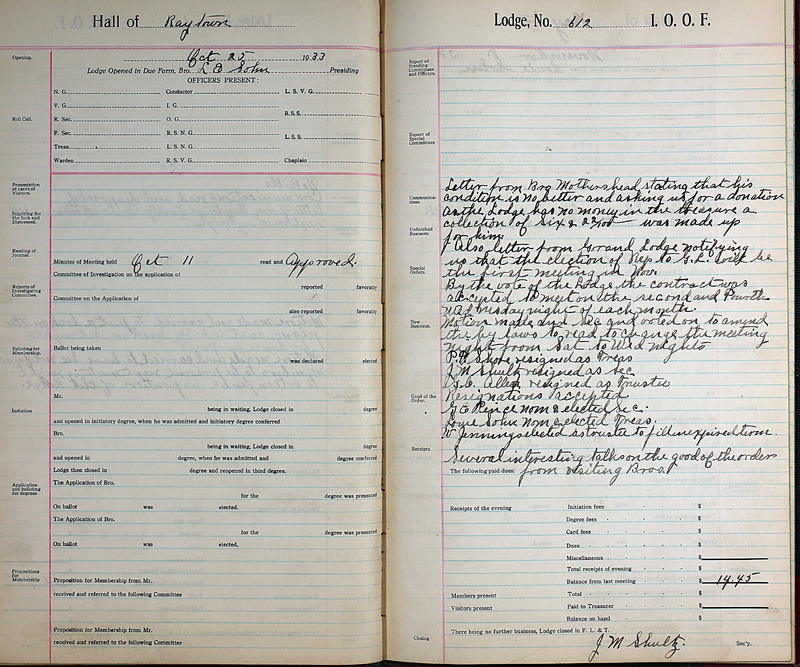 Hall of Raytown
Opening.
Oct 25 1933
Lodge Opened in Due Form, Bro. L E Sohn Presiding
OFFICERS PRESENT:
N. G. Conductor L. S. V. G.
V. G. I. G.
R.S.S.
Roll Call.
R. Sec. O. G.
F. Sec. R. S. N. G.
L.S.S.
Treas. L. S. N. G.
Warden R. S. V. G. Chaplain
Presentation of cards of Visitors.
Inquiring for the Sick and Distressed.
Reading of Journal.
Minutes of Meeting held Oct 11 read and Approved.
Committee of Investigation on the application of
Reports of Investigating Committee.
reported favorably
Committee on the Application of
also reported favorably
Balloting for Membership.
Ballot being taken
was declared elected
Mr.
Initiation
being in waiting, Lodge closed in degree
and opened in initiatory degree, when he was admitted and initiatory degree conferred
Bro.
being in waiting, Lodge closed in degree
and opened in degree, when he was admitted and degree conferred
Lodge then closed in degree and reopened in third degree.
Application and balloting for degrees
The Application of Bro.
for the degree was presented
On ballot was elected.
The Application of Bro.
for the degree was presented
On ballot was elected.
Propositions for Membership
Proposition for Membership from Mr.
received and referred to the following Committee
Proposition for Membership from Mr.
received and referred to the following Committee
Lodge, No. 612 I. O. O. F.
Report of Standing Committees and Officers.
Report of Special Committees
Communications.
Letter from Bro Mothershead stating that his
condition is no better and asking us for a donation
As the Lodge has no money in the treasure a
collection of Six & 22/100 was made up
Unfinished Business.
for him
Also letter from Grand Lodge notifying
us that the election of Rep to G.L. will be
Special Orders.
the first meeting in Nov.
By the vote of the Lodge the contract was
accepted to meet on the second and Fourth
Wednesday night of each month.
New Business.
Motion made and Sec and voted on to amend
the by laws to read to change the meeting
night from Sat to Wed nights
P. H Shore resigned as Treas
J M Shultz resigned as Sec
Allen resigned as Trustee
Good of the Order.
Resignations accepted
G E Rence nom & elected Sec.
Sohn nom & elected Treas.
W Jennings elected as trustee to fill unexpired term
Receipts.
Several interesting talks on the good of the order
The following paid dues: from visiting Bros.
Receipts of the evening Initiation fees $
Degree fees $
Card fees $
Dues $
Miscellaneous $
Total receipts of evening $
Balance from last meeting $ 14.45
Members present Total $
Visitors present Paid to Treasurer $
Balance on hand $
Closing
There being no further business, Lodge closed in F. L. & T.
J M Shultz Sec'y.